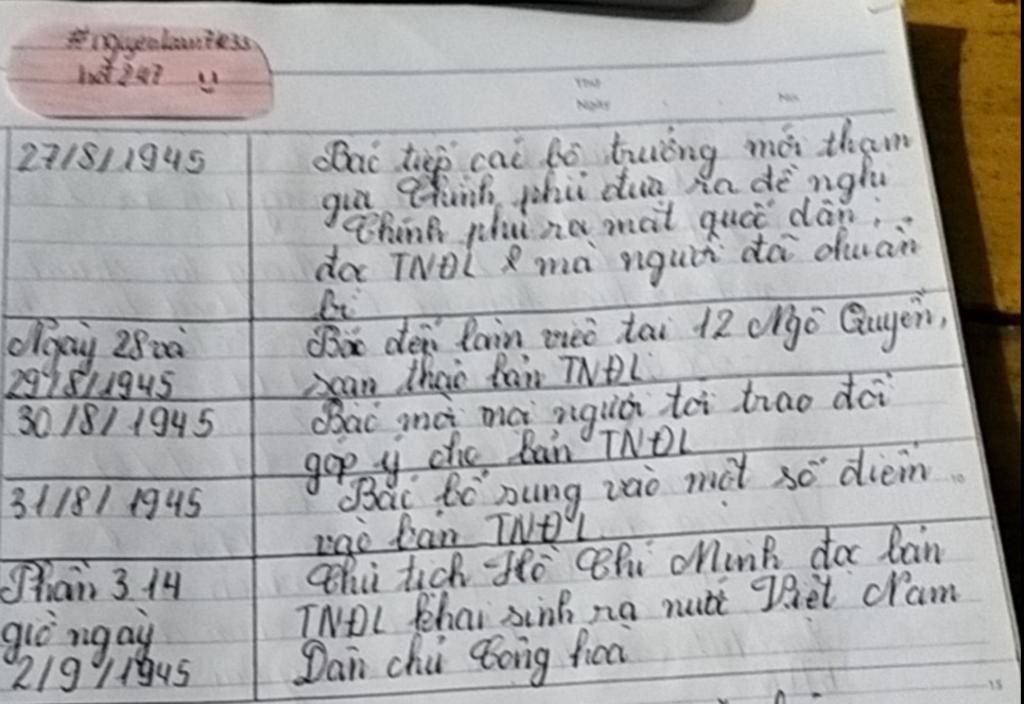 #nguyenloan7433
hot247
Thứ
Ngày No
27/8/1945 Bác tiếp các bộ trưởng mới tham
gia Chính phủ đưa ra đề nghị
Chính phủ ra mắt quốc dân;
đọc TNĐL & mà người đã chuẩn
bị
Ngày 28 và Bác đến làm việc tại 12 Ngô Quyền,
29/8/1945 soạn thảo bản TNĐL
30/8/1945 Bác mời mọi người tới trao đổi
góp ý cho bản TNĐL
31/8/1945 Bác bổ sung vào một số điểm
vào bản TNĐL
Phần 3 14 Chủ tịch Hồ Chí Minh đọc bản
giờ ngày TNĐL khai sinh ra nước Việt Nam
2/9/1945 Dân chủ Cộng hoà
10
15